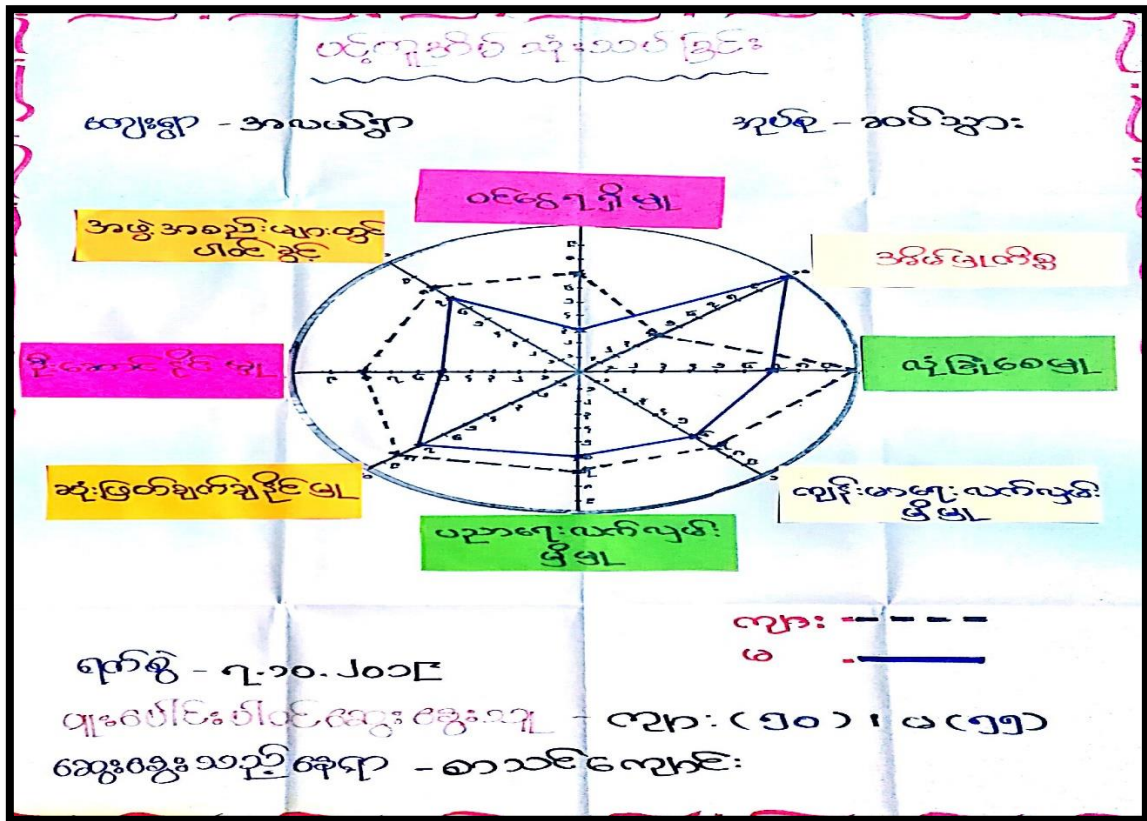 ပင့်ကူအိမ် သုံးသပ်ခြင်း
ကျေးရွာ - အလယ်ရွာ
အုပ်စု - ဆပ်သွား
ဝင်ငွေရရှိမှု
အဖွဲ့အစည်းများတွင်
ပါဝင်ခွင့်
အိမ်မှုကိစ္စ
ဦးဆောင်နိုင်မှု
လုံခြုံစေမှု
ဆုံးဖြတ်ချက်ချနိုင်မှု
ကျန်းမာရေးလက်လှမ်း
မှီမှု
ပညာရေးလက်လှမ်း
မှီမှု
ကျား - - - - -
မ -
ရက်စွဲ - ၇.၁၀.၂၀၁၉
ပူးပေါင်းပါဝင်ဆွေးနွေးသူ - ကျား (၅၀) ၊ မ (၅၅)
ဆွေးနွေးသည့်နေရာ - စာသင်ကျောင်း